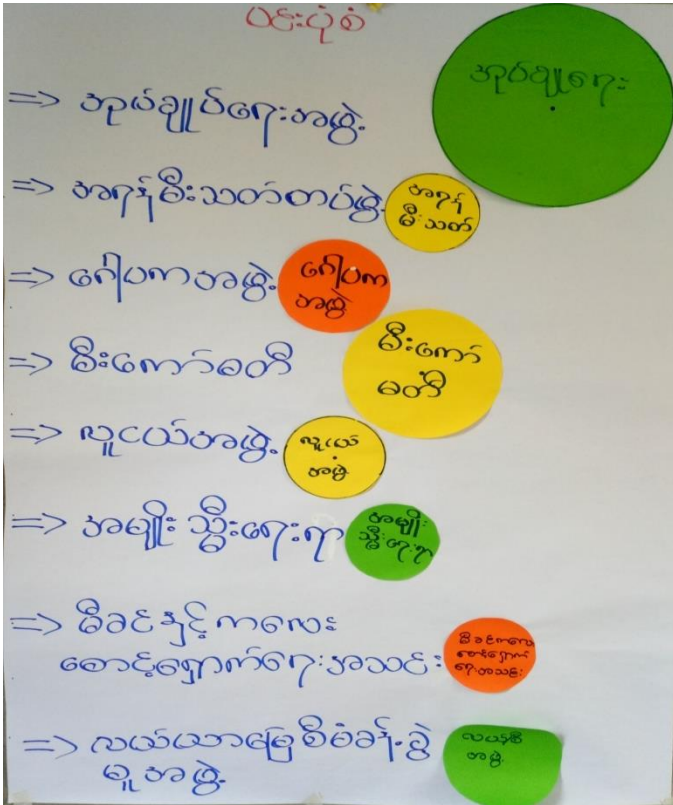 ပင်းပုံစံ
=> အုပ်ချုပ်ရေးအဖွဲ့
အုပ်ချုပ်ရေး
=> အရန်မီးသတ်တပ်ဖွဲ့
အရန်
မီးသတ်
=> ဂေါပကအဖွဲ့
ဂေါပက
အဖွဲ့
=> မီးကော်မတီ
မီးကော်
မတီ
=> လူငယ်အဖွဲ့
လူငယ်
အဖွဲ့
=> အမျိုးသ္မီးရေးရာ
အမျိုး
သ္မီးရေးရာ
=> မိခင်နှင့်ကလေး
စောင့်ရှောက်ရေးအသင်း
မိခင်ကလေး
စောင့်ရှောက်
ရေးအသင်း
=> လယ်ယာမြေစီမံခန့်ခွဲ
မူအဖွဲ့
အဖွဲ့